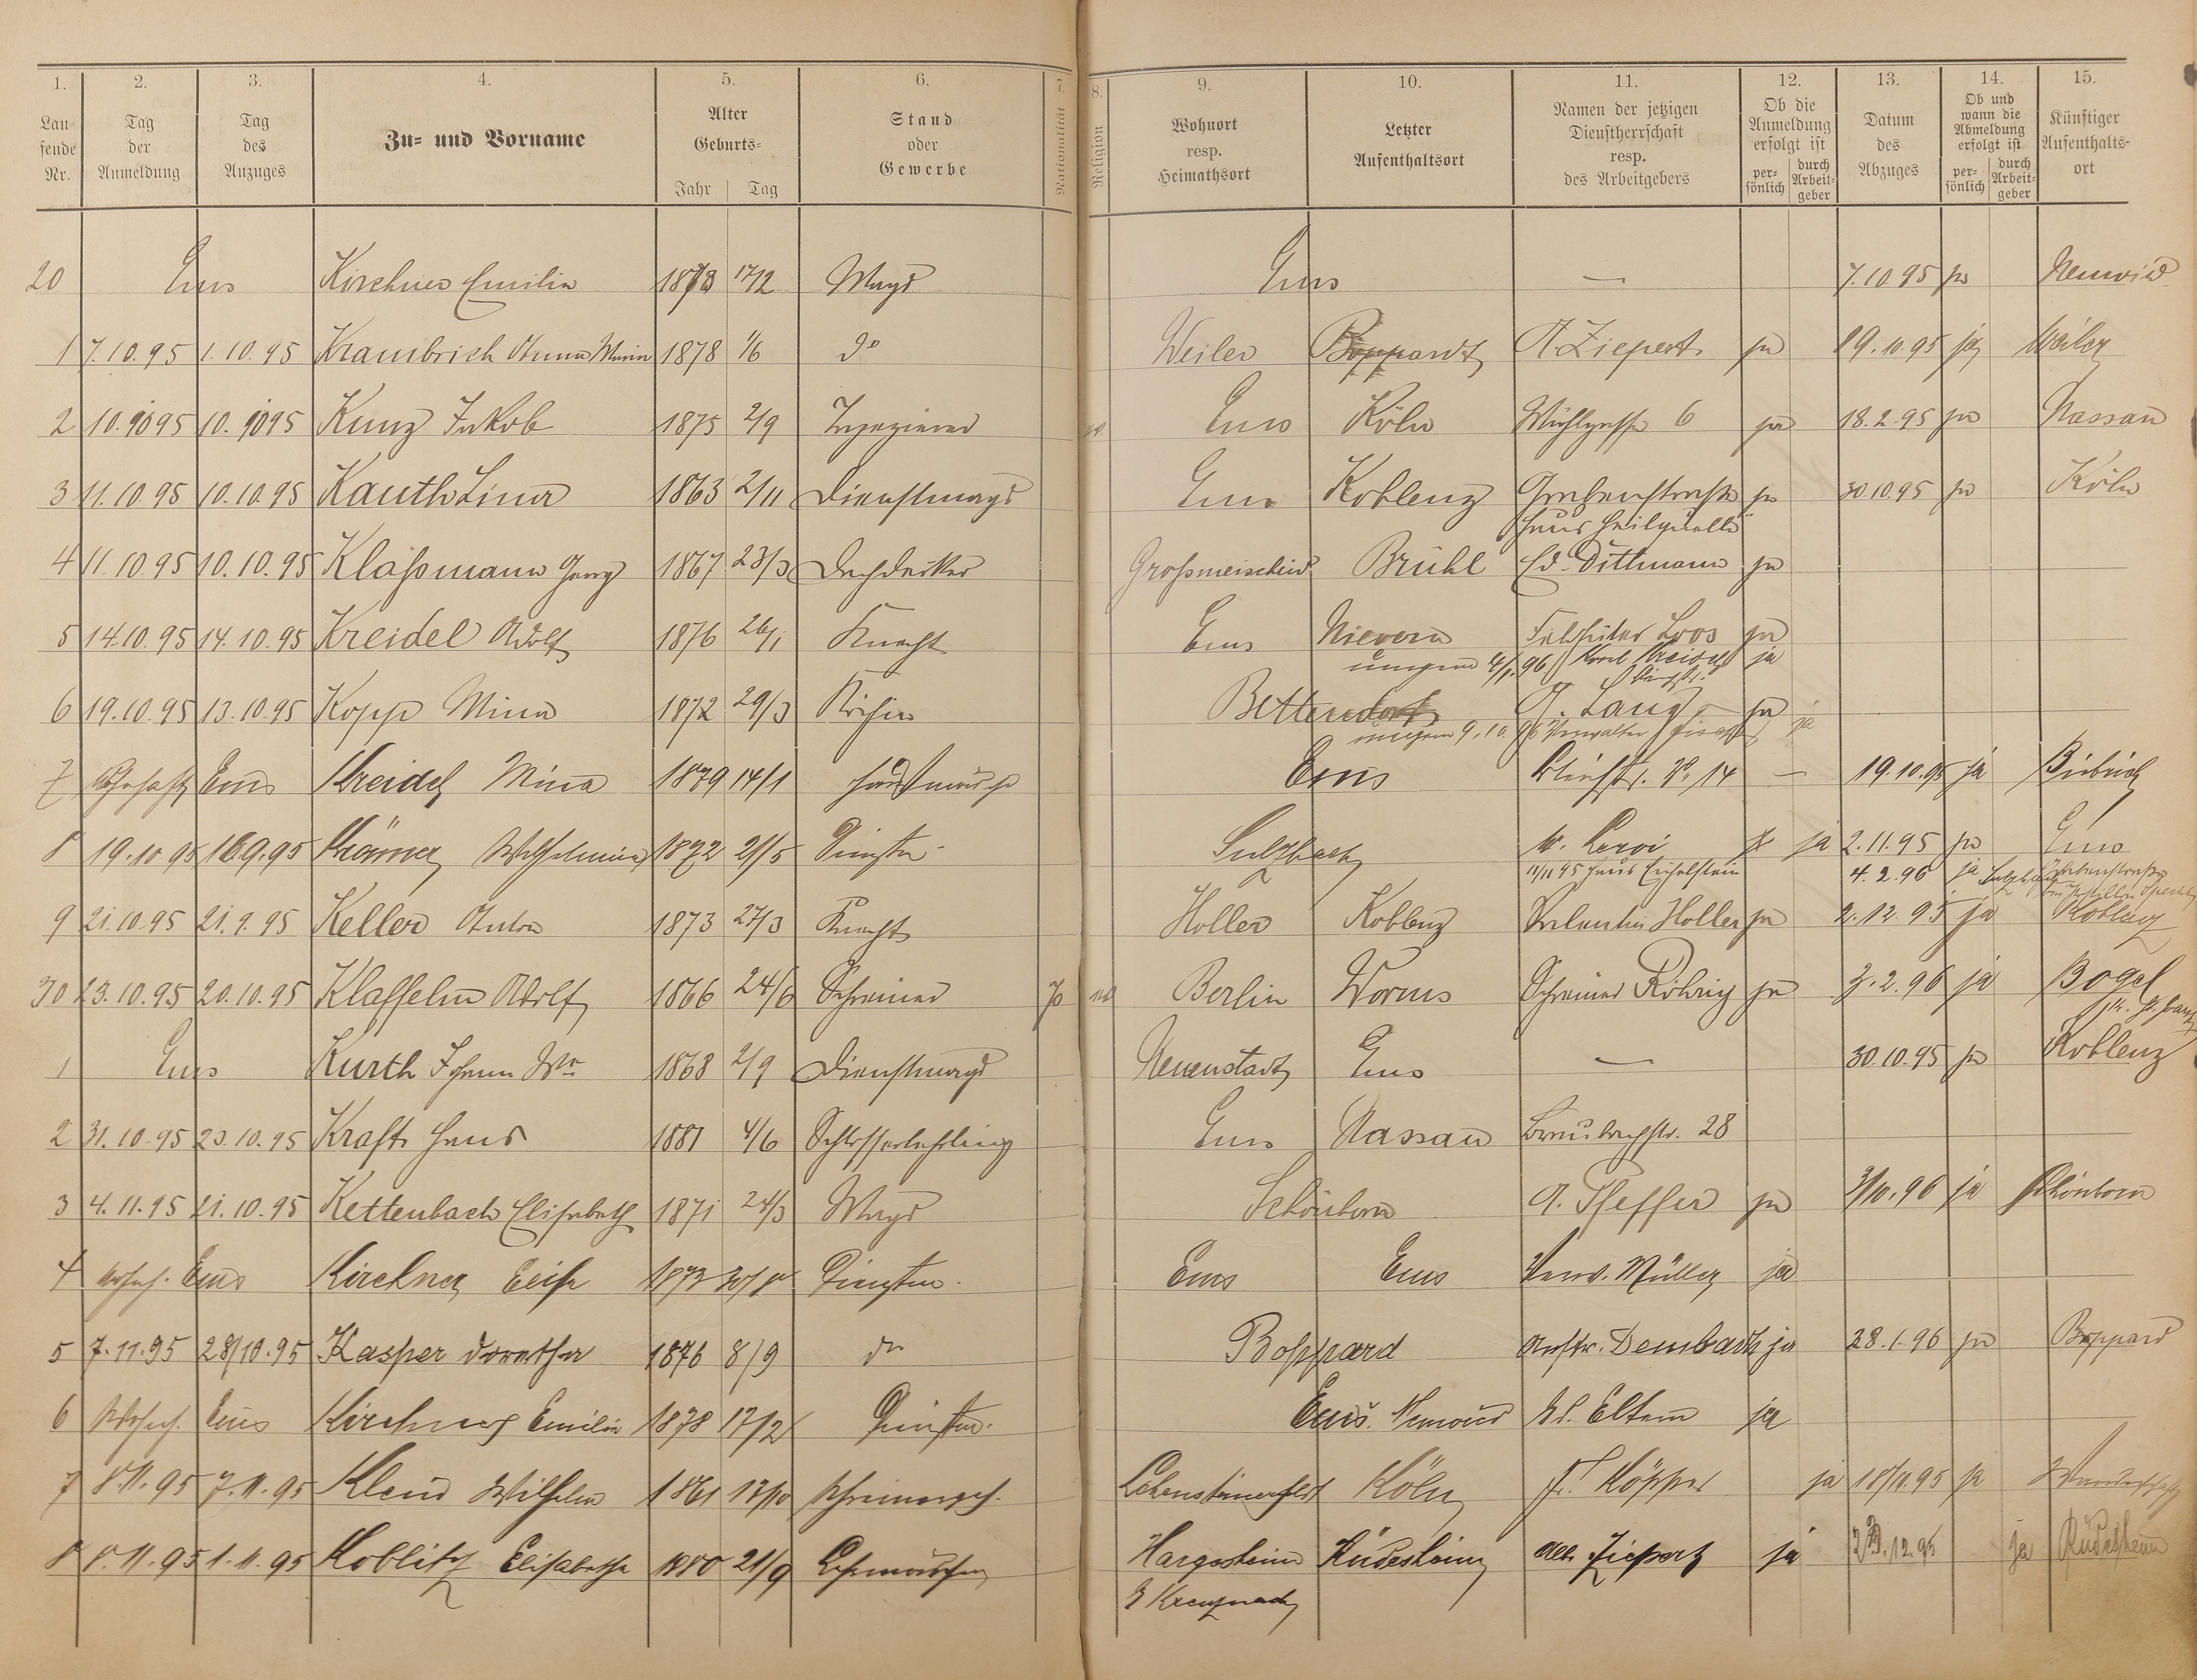 1. 2. 3. 4. 5. 6. 7. 8. 9. 10. 11. 12. 13. 14. 15.
Lau-
fende
Nr.
Tag
der
Anmeldung
Tag
des
Anzuges
Zu- und Vorname
Alter
Geburts-
Jahr Tag
Stand
oder
Gewerbe
Nationalität
Religion
Wohnort
resp.
Heimathsort
Letzter
Aufenthaltsort
Namen der jetzigen
Dienstherrschaft
resp.
des Arbeitgebers
Ob die
Anmeldung
erfolgt ist
per-
sönlich
durch
Arbeit-
geber
Datum
des
Abzuges
Ob und
wann die
Abmeldung
erfolgt ist
per-
sönlich
durch
Arbeit-
geber
Künftiger
Aufenthalts-
ort
20 Ems Kirchner Emilie 1878 17/2 Magd Ems — 7.10.95 ja Neuwied
1 7.10.95 1.10.95 Krambrich Anna Maria 1878 1/6 do Weiler Boppard A Ziepert ja 19.10.95 ja Weiler
2 10.10 95 10.10 95 Kunz Jakob 1875 2/9 Tapezierer Ems Köln Mühlgasse 6 ja 18.2.95 ja Nassau
3 11.10.95 10.10.95 Kauth Lina 1863 2/11 Dienstmagd Ems Koblenz Grabenstraße ja 30.10.95 ja Köln
Haus Heilquelle
4 11.10.95 10.10.95 Klaßmann Georg 1867 23/3 Dachdecker Großmeischeid Brühl Ed. Dittmann ja
5 14.10.95 14.10.95 Kreidel Adolf 1876 26/1 Knecht Ems Nievern Feldhüter Loos ja
umgem 4/1.96 Karl Kreidel ja
6 19.10.95 13.10.95 Kopp Mina 1872 29/3 Köchin Bettendorf A. Lang ja
umgem 9.10.96 Verwalter ja
7 Wohnhaft Ems Kreidel Mina 1879 14/1 Hausmädch Ems No 14 — 19.10.95 ja Biebrich
8 19.10 95 16.9.95 Krämer Wilhelmine 1872 21/5 Dienstm. Sulzbach W. ja 2.11.95 ja Ems
11/11 95 Haus 4.2.96 ja
9 21.10.95 21.9.95 Keller Anton 1873 27/3 Knecht Holler Koblenz Valentin Holler ja 2.12.95 ja Koblenz
30 23.10.95 20.10.95 Adolf 1866 24/6 Schreiner Berlin Worms Schreiner Röhrig ja 3.2.96 ja Bogel
1 Ems Kurth Johann Wwe 1868 2/9 Dienstmagd Neuenstadt Ems — 30.10.95 ja Koblenz
2 31.10.95 23.10.95 Kraft Hans 1881 4/6 Schlosserlehrling Ems Nassau Braubachstr. 28
3 4.11.95 21.10.95 Kettenbach Elisabeth 1871 24/3 Magd Schönborn A. Pfeffer ja 3/10.96 ja Schönborn
4 wohnh. Ems Kirchner Elise 1873 Dienstm. Ems Ems Verw. Müller ja
5 7.11.95 28/10.95 Kasper Dorothea 1876 8/9 do Boppard Dembach ja 28.1.96 ja Boppard
6 Wohnh. Ems Kirchner Emilie 1878 17/2 Dienstm. Ems. Neuwied b/d. Eltern ja
7 8.11.95 7.11.95 Wilhelm 1861 13/10 Schreinergeh. Köln Fr. Köpper ja 18/11.95 ja Wanderschaft
8 8.11.95 1.11.95 Koblitz Elisabetha 1880 21/9 Lehrmädchen Hargesheim Rüdesheim Alb. Ziepert ja 23.12.95 ja Rüdesheim
b/ Kreuznach